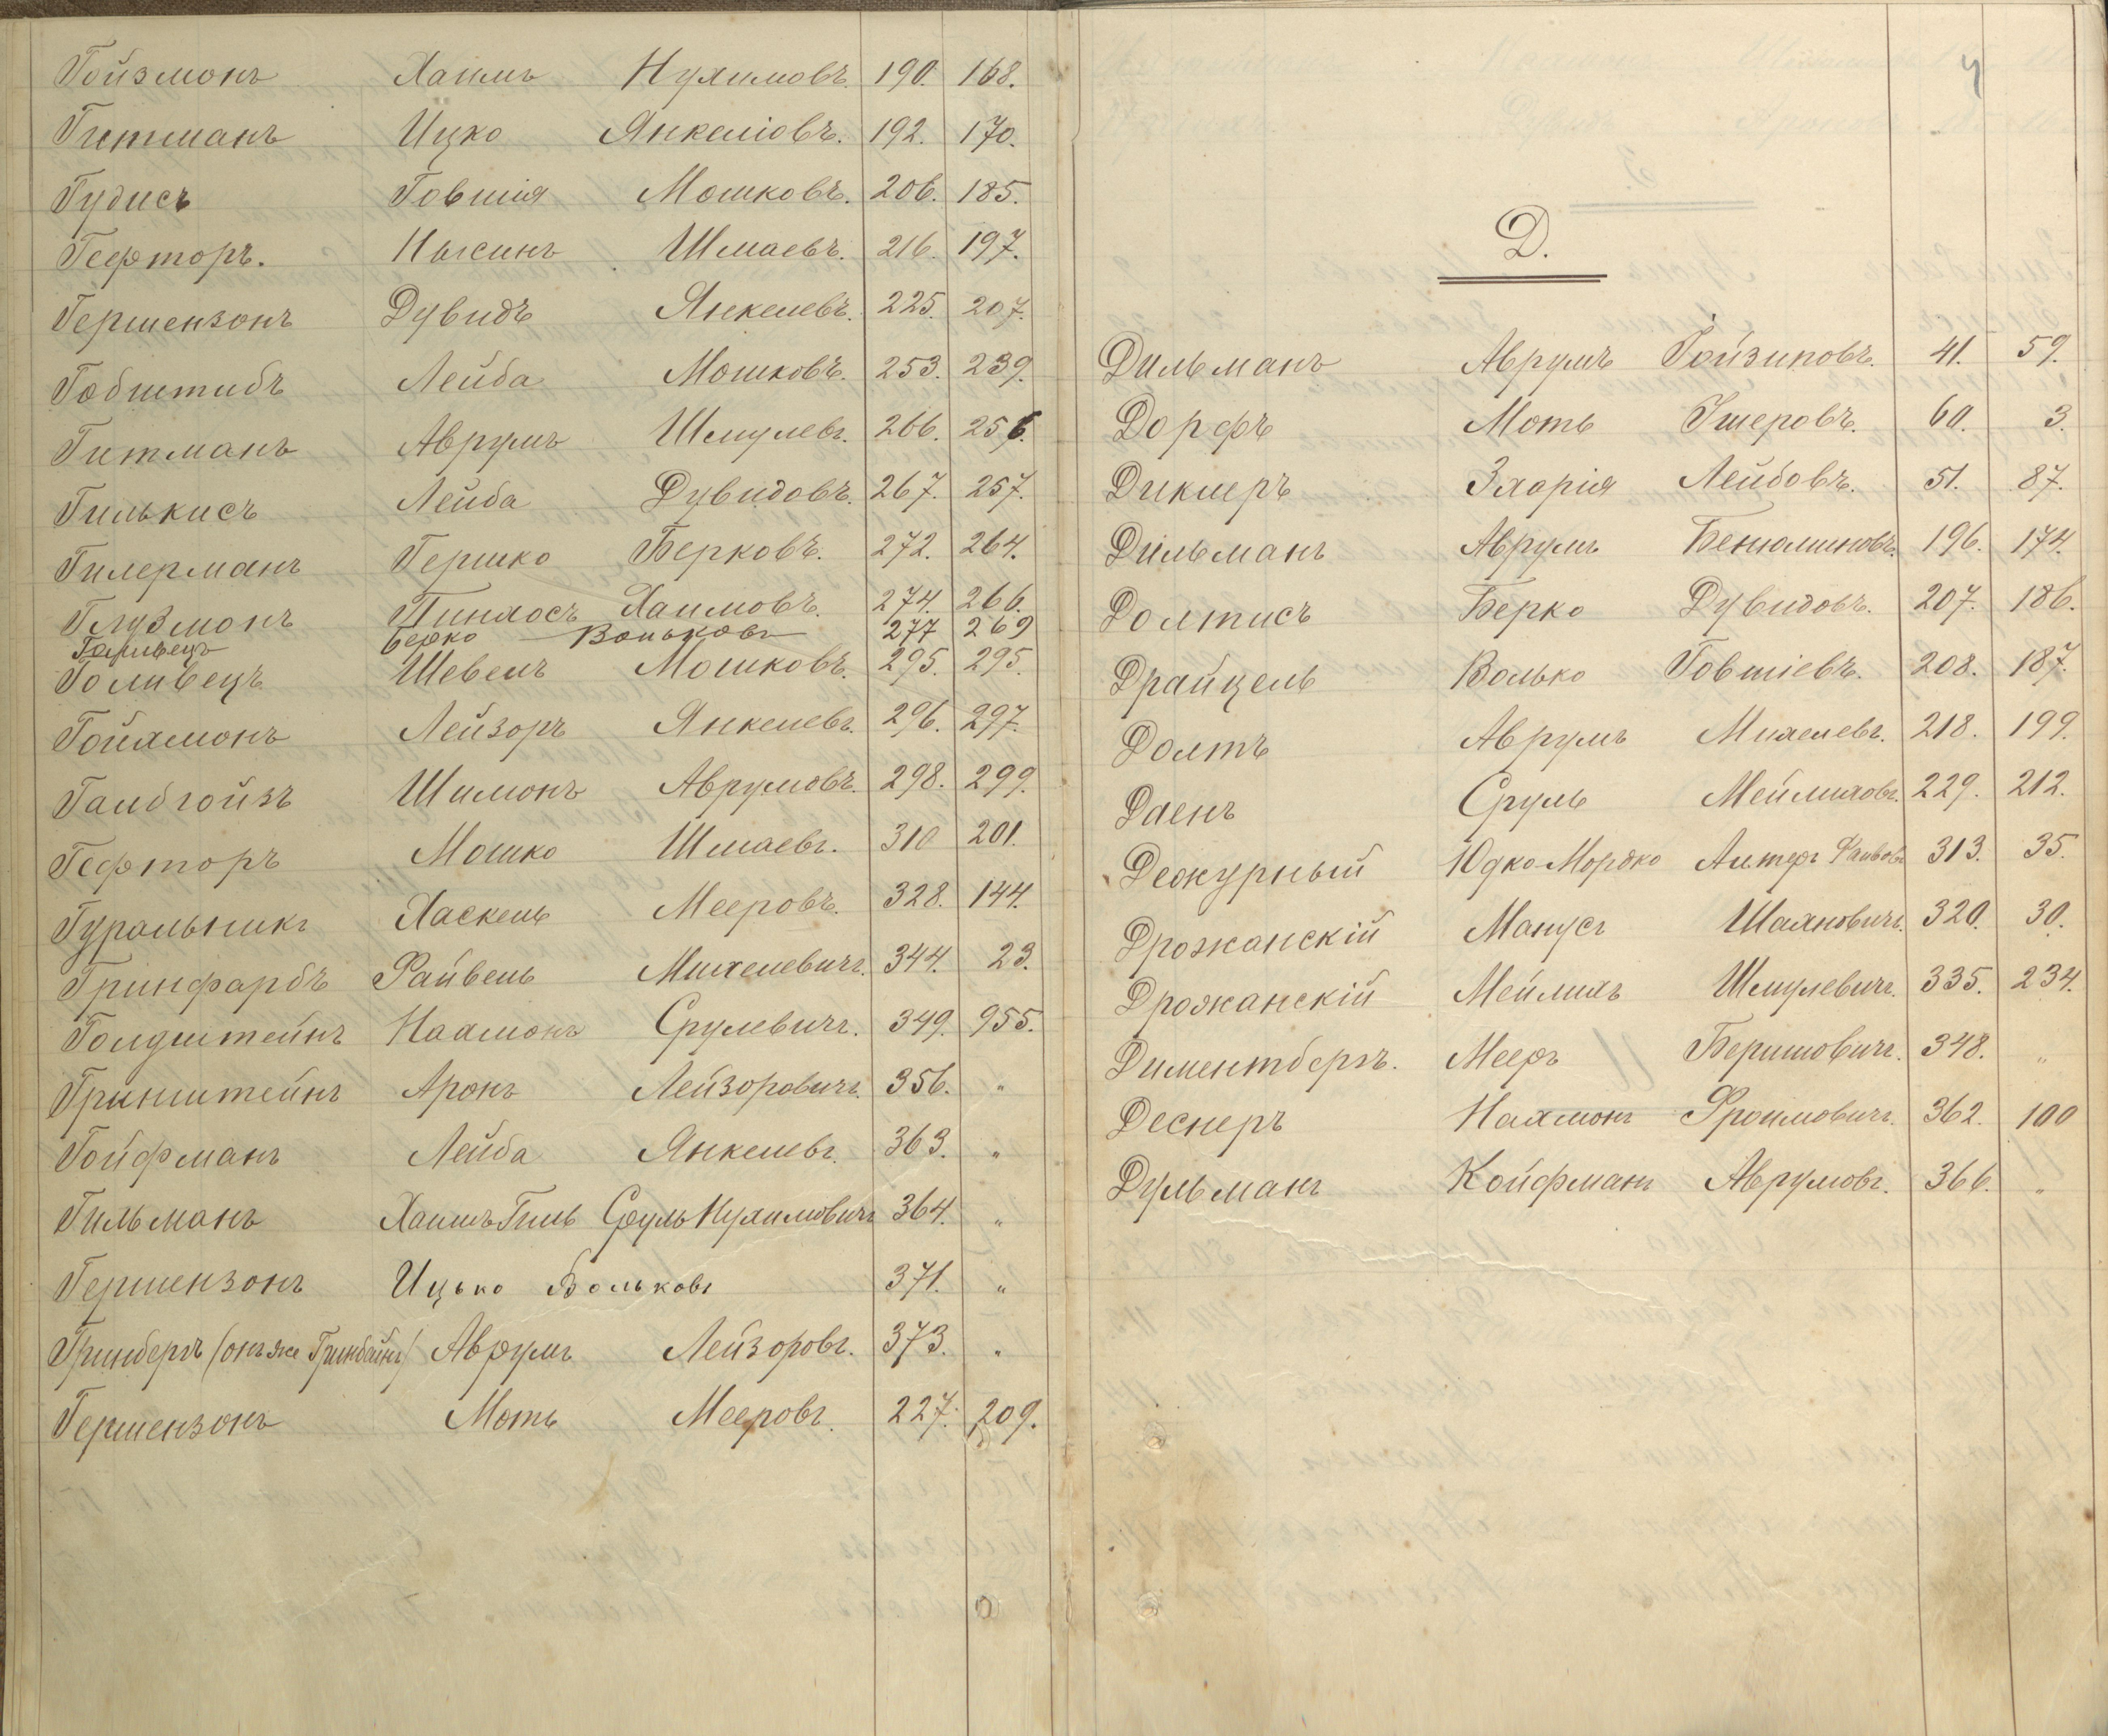 Гойзмонъ Хаимъ Нухимовъ. 190. 168.
Гитманъ Ицко Янкеліовъ. 192. 170.
Гудисъ Говшія Мошковъ. 206. 185.
Гефторъ. Нысинъ Шмаевъ. 216. 197.
Гершензонъ Дувидъ Янкелевъ. 225. 207.
Гобштибъ Лейба Мошковъ. 253. 239.
Гитманъ Аврумъ Шмулевъ. 266. 256.
Гилькисъ Лейба Дувидовъ. 267. 257.
Гилерманъ Гершко Берковъ. 272. 264.
Глузмонъ Пинхосъ Хаимовъ. 274. 266.
Голивецъ Берко Вольковъ 277 269
Голивецъ Шевель Мошковъ. 295. 295.
Гойхмонъ Лейзоръ Янкелевъ. 296. 297.
Гамбгойзъ Шимонъ Аврумовъ. 298. 299.
Гефторъ Мошко Шмаевъ. 310 201.
Гуральникъ Хаскель Мееровъ. 328. 144.
Гринфарбъ Файвель Михелевичъ. 344. 23.
Голдштейнъ Нахмонъ Срулевичъ. 349. 955.
Гринштейнъ Аронъ Лейзоровичъ. 356. "
Гойфманъ Лейба Янкелевъ. 363. "
Гильманъ Хаимъ Гиль Сруль Нухимовичъ 364. "
Гершензонъ Ицько Вольковъ 371. "
Гринбергъ (онъ же Гринбаймъ) Аврумъ Лейзоровъ. 373. "
Гершензонъ Моть Мееровъ. 227. 209.
Д.
Дильманъ Аврумъ Гойзиповъ. 41. 59.
Дорфъ Моть Ушеровъ. 60. 3.
Дикмеръ Зхорія Лейбовъ. 51. 87.
Дильманъ Аврумъ Бенюминовъ. 196. 174.
Долтисъ Берко Дувидовъ. 207. 186.
Драйцель Волько Говшіевъ. 208. 187.
Долтъ Аврумъ Михелевъ. 218. 199.
Даенъ Сруль Мейлиховъ. 229. 212.
Дежурный Юдко-Мордко Алтеръ Файвовъ 313. 35.
Дрожанскій Манусъ Шахновичъ. 320. 30.
Дрожанскій Мейлихъ Шмулевичъ. 335. 234.
Диментбергъ. Мееръ Бершовичъ. 348. "
Деснеръ Нахмонъ Фроимовичъ. 362. 100
Дульманъ Койфманъ Аврумовъ. 366. "